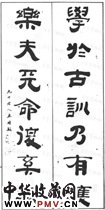 學於古訓乃有獲
樂夫天命復奚疑
中华收藏网
WWW.PMV.CN